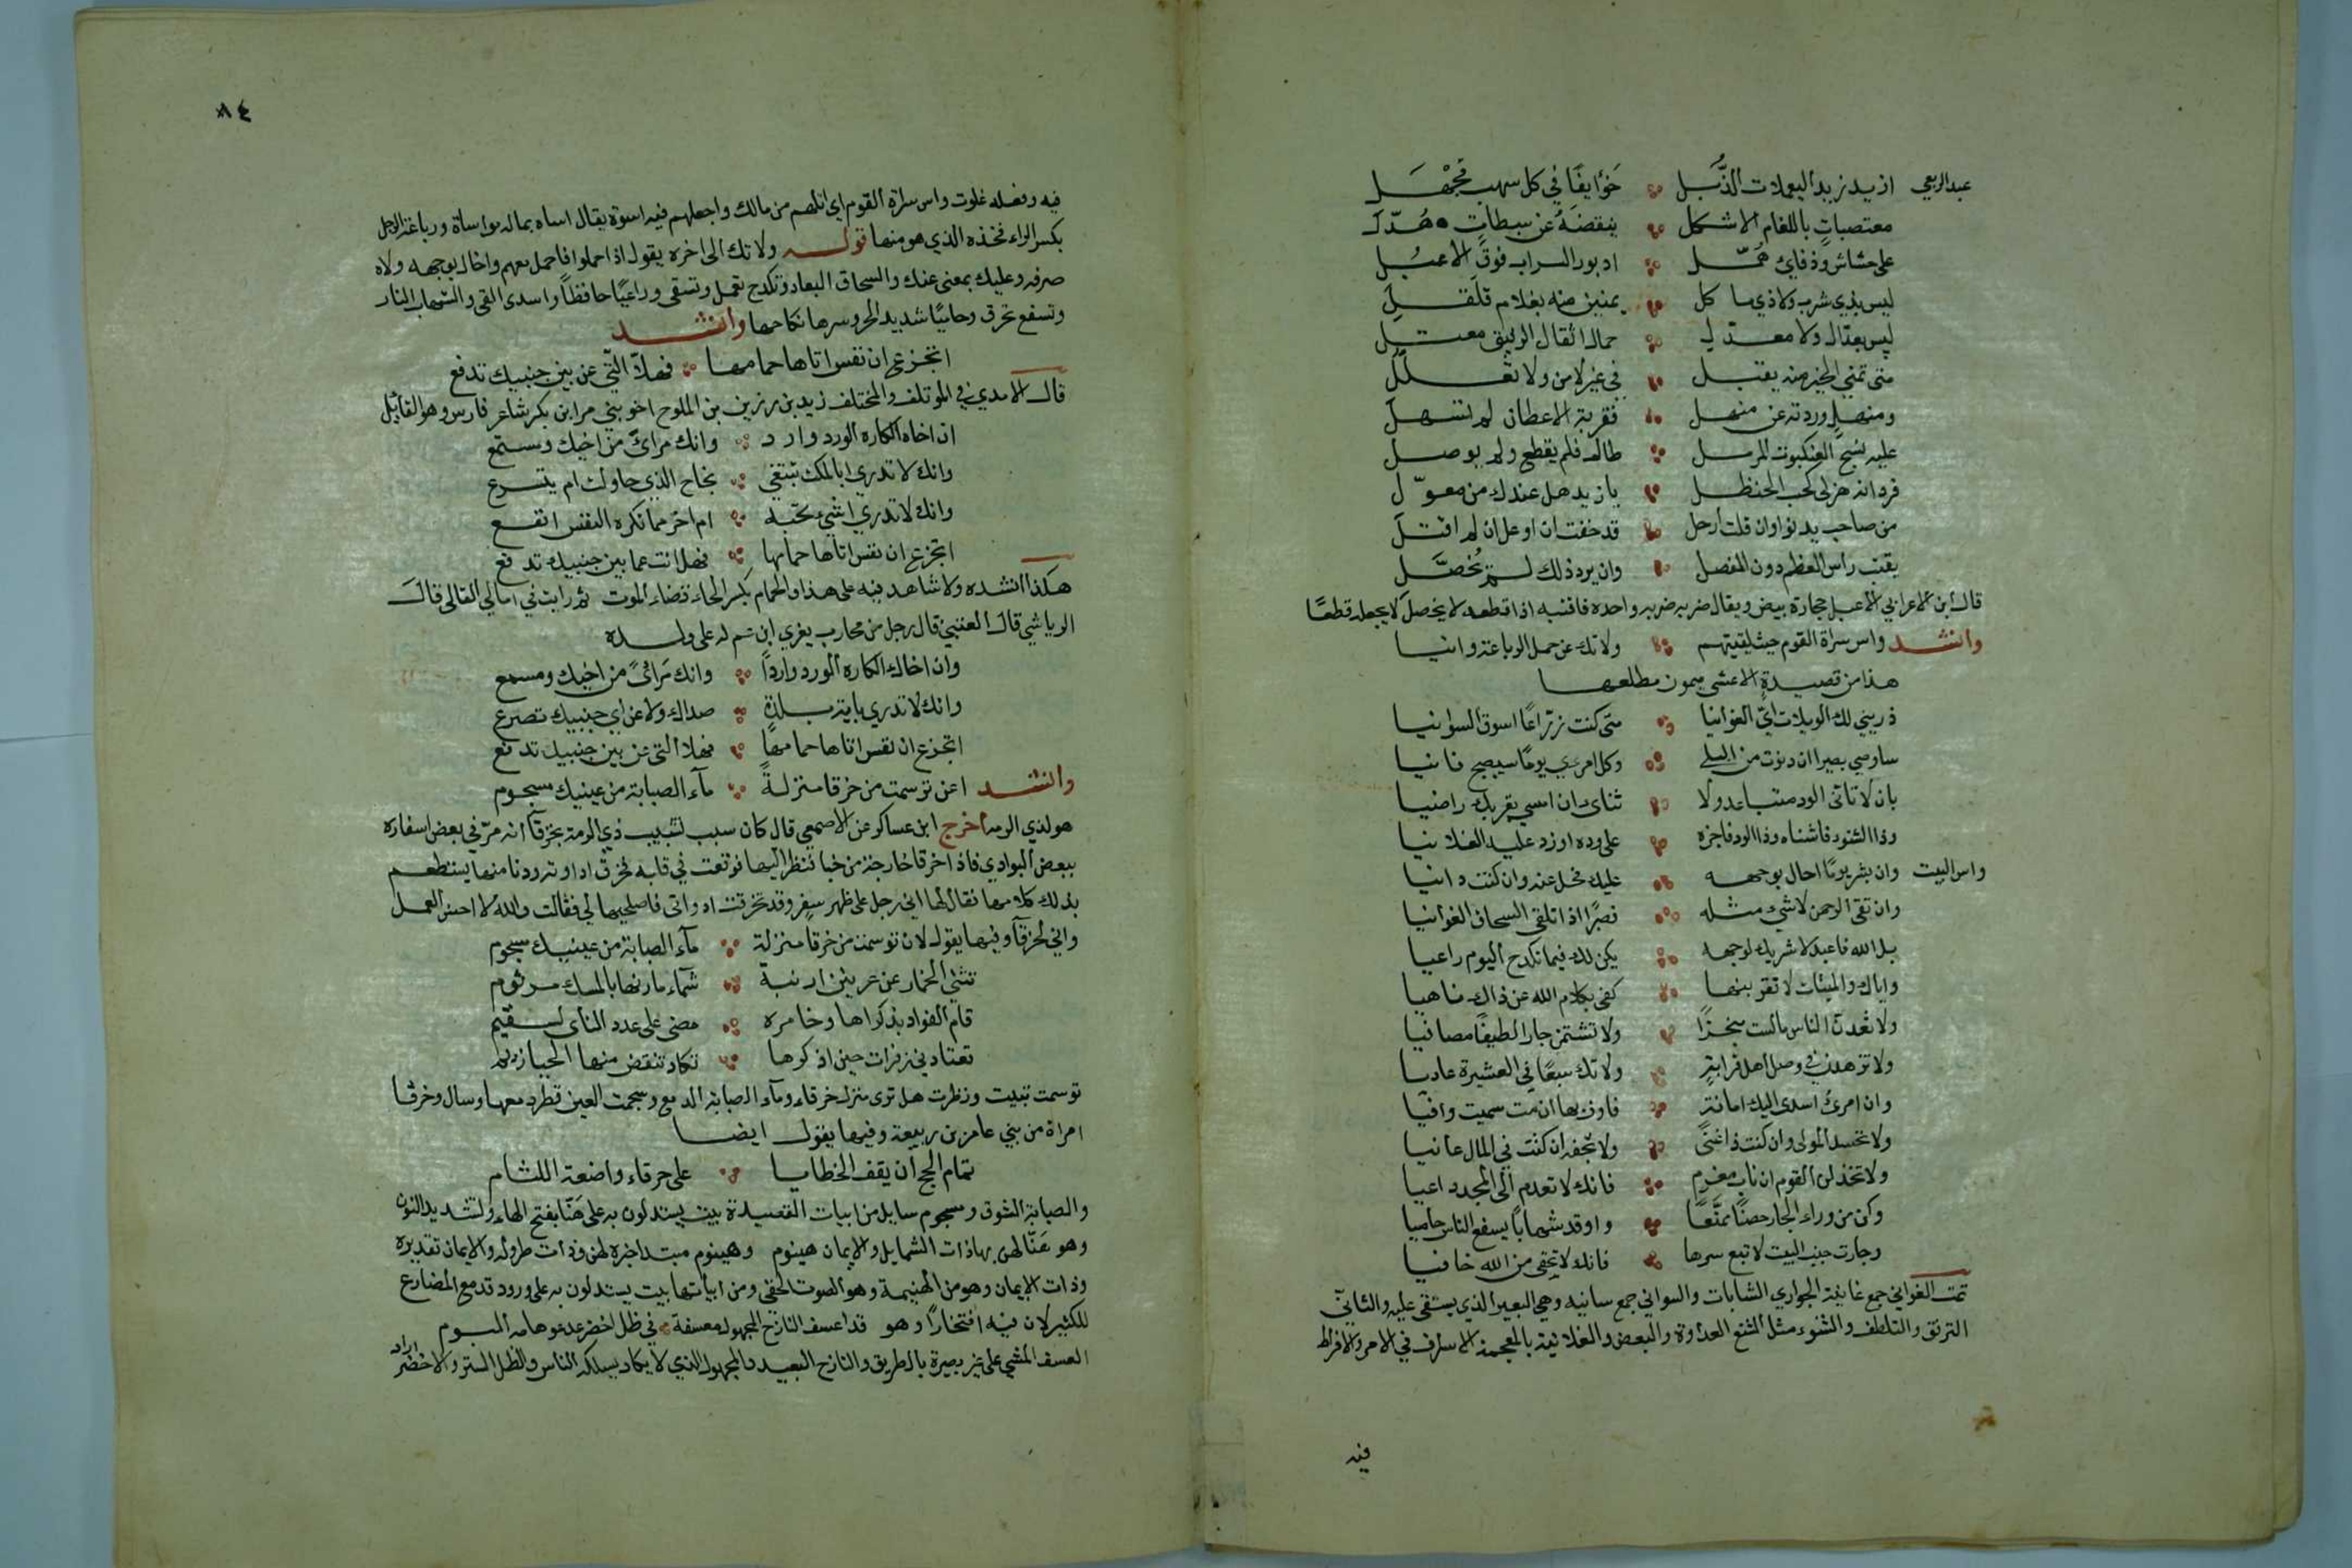 عبد الربعي ازيد زيد اليعملات الذُّبَّل خَوَايفًا في كل سهب مَجْهَل
معتصبات باللغام الاشكل ينقضنه عن سبطات هُدّل
على حشاش وذفاري هُمَّل
ليس بذي شرب ولا ذي ما كل يمنين منه بغلام قلقل
ليس بعدّال ولا معتدل حمال اثقال الوثيق معتل
متى تمني الخير منه يفتبل في غير لا من ولا تعلل
ومنهل وردته عن منهل فقربة الاعطان لم تسهل
عليه نسج العنكبوت المرمل طال فلم يقطع ولم يوصل
يا زيد هل عندك من معوّل
من صاحب يدنو وان قلت ارحل قد خفت ان او علان لم افتل
يقتب راس العظم دون المفصل وان يرد ذلك لم يُخصَّل
قال ابن الاعرابي الاعبل حجارة بيض ويقال ضربه ضربه واحده فاقتبه اذا قطعه لا يخصل لا يجعله قطعًا
وانشد واس سراة القوم حيث لقيتهم ولا تك عن حمل الرباعة وانيا
هذا من قصيدة الاعشى ميمون مطلعها
ذريني لك الويلات آتي الغوانيا متى كنت زرّاعًا اسوق السوانيا
ساوصي بصيرا ان دنوت من البلى وكل امري يومًا سيصبح فانيا
بان لا تأتى الود متباعد ولا تناى وان امسى بقربك راضيا
وذا الشنو فاشناه وذا الود فاجزه على وده او زد عليه الغلانيا
واس البيت وان بشر يومًا احال بوجهه عليك فحل عنه وان كنت دانيا
وان تقى الرحمن لا شيء مثله فصبرًا اذا تلقى السحاق الغوانيا
بل الله فاعبد لا شريك لوجهه يكن لك فيما تكدح اليوم راعيا
واياك والميتات لا تقربنها كفى بكلام الله عن ذاك ناهيا
ولا تعدن الناس مالست منجزًا ولا تشتمن جارا لطيفًا مصافيا
ولا تزهدن في وصل اهل قرابة ولا تك سبعًا في العشيرة عاديا
وان امرئ اسدى اليك امانة فاوف بها ان مت سميت وافيا
ولا تحسد المولى وان كنت ذا غنًى ولا تجفه ان كنت في المال عانيا
ولا تخذلن القوم ان ناب مغرم فانك لا تعدم الى المجد داعيا
وكن من وراء الجار حصنًا ممنَّعًا واوقد شهابًا يسفع الناس حاميا
وجارت جنب البيت لا تبع سرها فانك لا تخفى من الله خافيا
تمت الغواني جمع غانية الجواري الشابات والسواني جمع سانيه وهي البعير الذي يستقى عليه والتاني
الترفق والتلطف والشنوء مثل الشنع العداوة والبغض والغلانية بالمعجمة الاسراف في الامر والافراط
فيه
٨٤
فيه وفعله غلوت واس سراة القوم اي اتلهم من مالك واجعلهم فيه اسوة يقال اساه بماله مواساة ورباعة الرجل
بكسر الراء فخذه الذي هو منها قوله ولا تك الى اخره يقول اذا حملوا فاحمل معهم واحال بوجهه ولاه
صرفه وعليك بمعنى عنك والسحاق البعاد وتكدح تعمل وتسقى وراعيًا حافظًا واسدى القى والشهاب النار
وتسفع تحرق وحاميًا شديد الحر وسرها نكاحها وانشد
اتجزع ان نفس اتاها حمامها فهلّا الّتي عن بين جنبيك تدفع
قال الامدي في الموتلف والمختلف زيد بن رزين بن الملوح اخو بني مر ابن بكر شاعر فارس وهو القائل
ان اخاه الكاره الورد وارد وانك مرأى من اخيك ومستمع
وانك لا تدري ابالمكث تبتغي نجاح الذي حاولت ام يتسرع
وانك لا تدري اشيء تحبّه ام اخر مما تكره النفس انفع
اتجزع ان نفس اتاها حمامها فهلا انت عما بين جنبيك تدفع
هكذا انشده ولا شاهد فيه على هذا والحمام بكسر الحاء قضاء الموت ثم رايت في امالي القالى قال
الرياشي قال العتبي قال رجل من محارب يعزي ابن عم له على ولده
وان اخاك الكاره الورد واردًا وانك مرأىً من اخيك ومسمع
وانك لا تدري باية بلدة صداك ولا عن اي جنبيك تصرع
اتجزع ان نفس اتاها حمامها فهلا التي عن بين جنبيك تدفع
وانشد اعن توسمت من خرقا منزلةً مآء الصبابة من عينيك مسجوم
هو لذي الرمه اخرج ابن عساكر عن الاصمعي قال كان سبب تشبيب ذي الرمة بخرقآ انه مرّ في بعض اسفاره
ببعض البوادي فاذا خرقا خارجة من خبا فنظر اليها فوقعت في قلبه فخرق اداوته ودنا منها يستطعم
بذلك كلامها فقال لها اني رجل على ظهر سفر وقد تخرقت اداوتي فاصلحيها لي فقالت والله لا احسن العمل
واني لخرقآ وفيها يقول لان توسمت من خرقا منزلة مآء الصبابة من عينيك سجوم
تثنى الخمار عن عرنين ارنبة شمآء مارنها بالمسك مرثوم
قام الفواد بذكراها وخامره مضى على عدد الناى لسقيم
تعتادني زفرات حين اذكرها تكاد تنقض منها الحيازيم
توسمت تبينت ونظرت هل ترى منزل خرقاء ومآء الصبابة الدمع وسجمت العين قطر دمعها وسال وخرقا
امراة من بني عامر بن ربيعة وفيها يقول ايضا
تمام الحج ان يقف الخطايا على خرقاء واضعة اللثام
والصبابة الشوق ومسجوم سايل من ابيات القصيدة بيت يستدلون به على هَنّا بفتح الهاء وتشديد النون
وهو هَنّا لهن بها ذات الشمايل والايمان هينوم وهينوم مبتدا خبره لهن وذات طروله والايمان تقديره
وذات الايمان وهو من الهنيمة وهو الصوت الخفي ومن ابياتها بيت يستدلون به على ورود قد مع المضارع
للكثير لان فيه افتخارًا وهو قد اعسف النازح المجهول معسفة في ظل اخضر يدعو هامه البوم
العسف المشي على غير بصيرة بالطريق والنازح البعيد والمجهول الذي لا يكاد يسلكه الناس والظل الستر والاخضر اراد